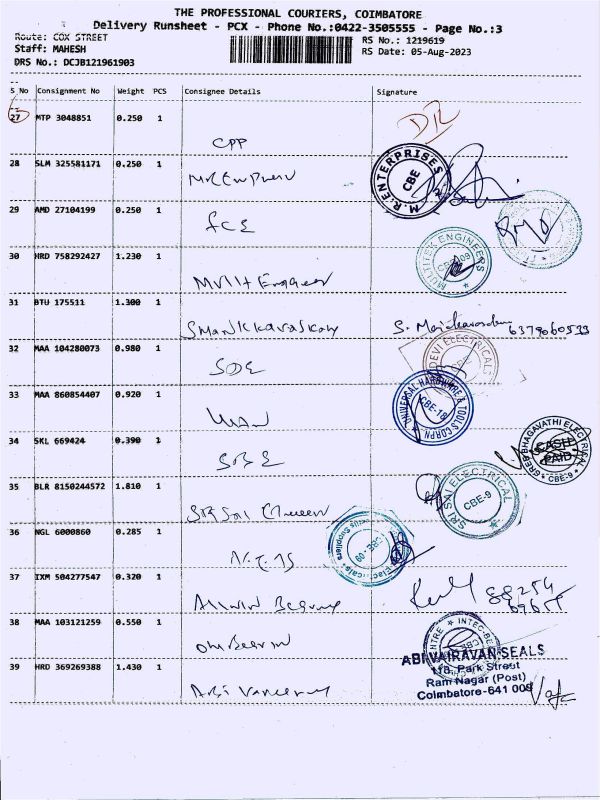 THE PROFESSIONAL COURIERS, COIMBATORE
Delivery Runsheet - PCX - Phone No.:0422-3505555 - Page No.:3
Route: COX STREET
RS No.: 1219619
Staff: MAHESH
RS Date: 05-Aug-2023
DRS No.: DCJB121961903
S No Consignment No Weight PCS Consignee Details Signature
27 MTP 3048851 0.250 1
CPP
28 SLM 325581171 0.250 1
M.R.ENTERPRISES
CBE
29 AMD 27104199 0.250 1
30 HRD 758292427 1.230 1
MULTITEK ENGINEERS
31 BTU 175511 1.300 1
6379060533
32 MAA 104280073 0.980 1
SDE
DEVI ELECTRICALS
33 MAA 860854407 0.920 1
UNIVERSAL HARDWARE & TOOLS CORPN
CBE-18
34 SKL 669424 0.390 1
SREE BHAGAVATHI ELECTRICAL
CASH
PAID
CBE-9
35 BLR 8150244572 1.810 1
SRI SAI ELECTRICAL
CBE-9
36 NGL 6000860 0.285 1
CBE - 09
37 IXM 504277547 0.320 1
38 MAA 103121259 0.550 1
39 HRD 369269388 1.430 1
ABI VAIRAVAN SEALS
118, Park Street
Ram Nagar (Post)
Coimbatore-641 009